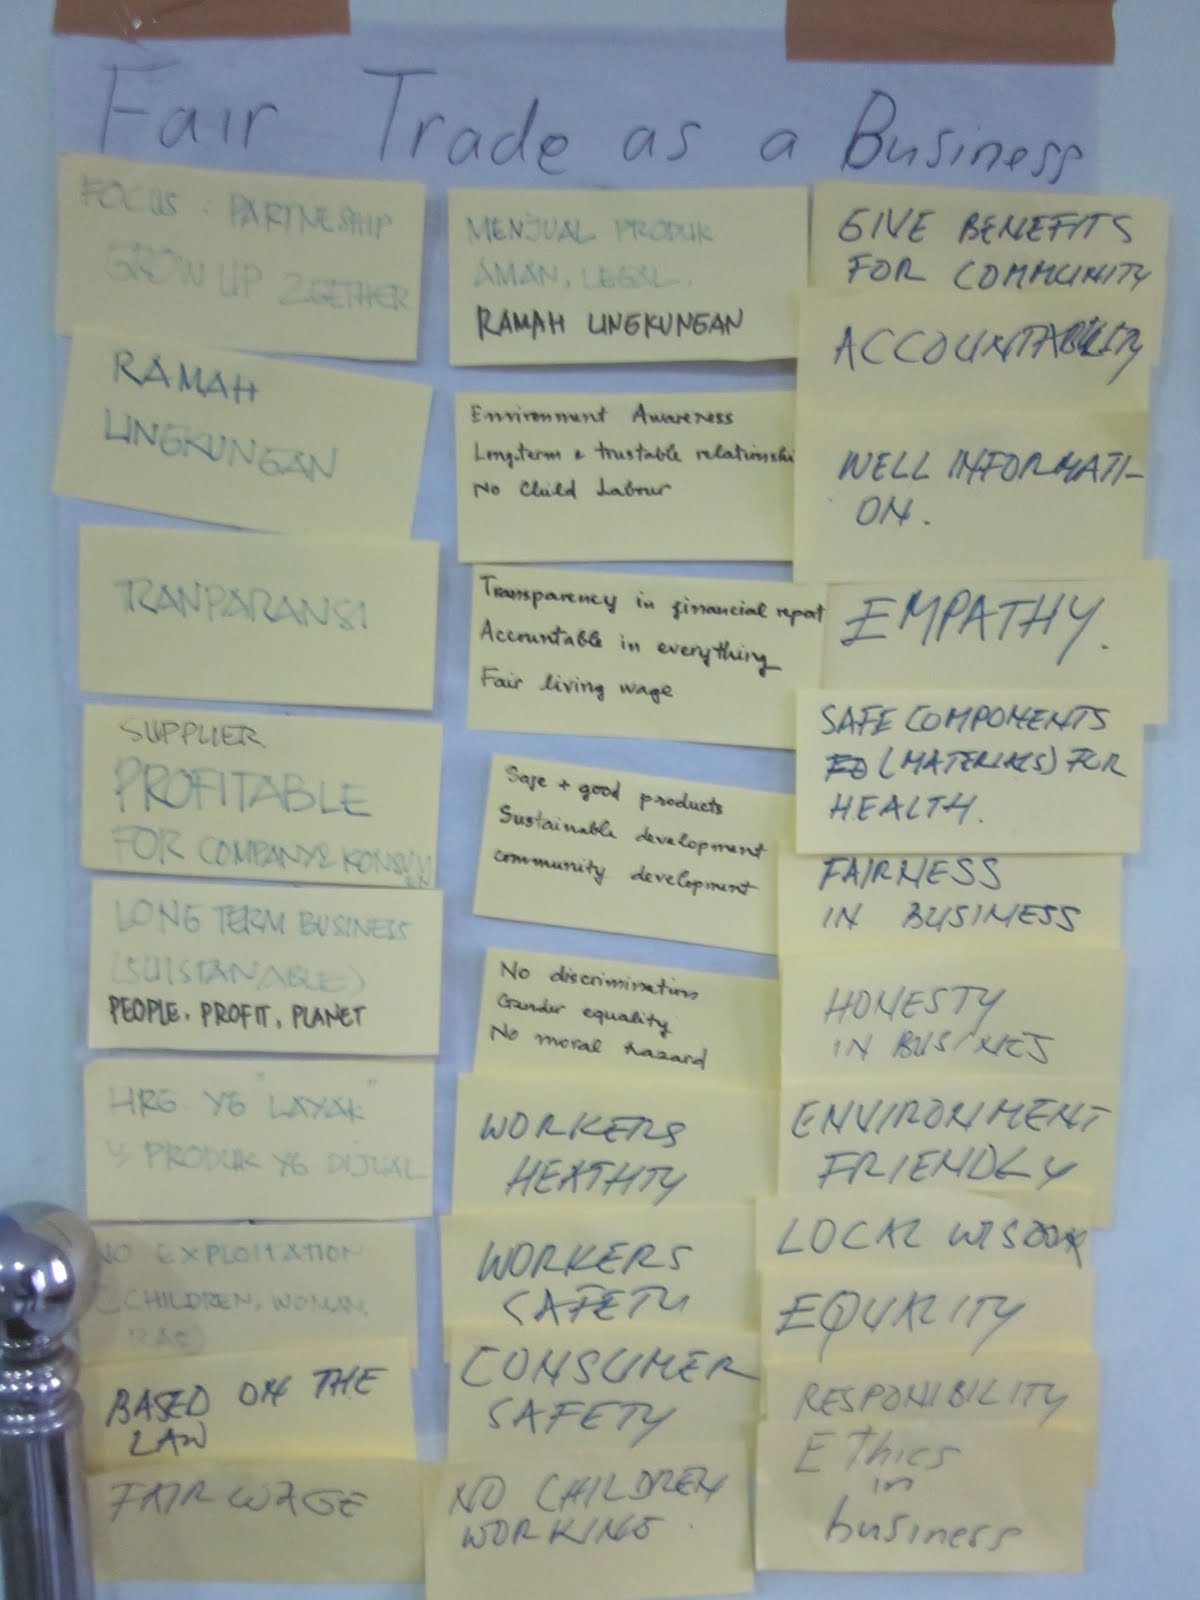 Fair Trade as a Business
FOCUS : PARTNESHIP
GROW UP 2GETHER
RAMAH
LINGKUNGAN
TRANPARANSI
SUPPLIER
PROFITABLE
FOR COMPANY & KONSUMEN
LONG TERM BUSINESS
(SUISTANABLE)
PEOPLE. PROFIT. PLANET
HRG YG "LAYAK"
PRODUK YG DIJUAL
NO EXPLOITATION
(CHILDREN, WOMAN,
RAS)
BASED ON THE
LAW
FAIR WAGE
MENJUAL PRODUK
AMAN, LEGAL.
RAMAH LINGKUNGAN
Environment Awareness
Longterm & trustable relationshi
No Child Labour
Transparency in financial report
Accountable in everything
Fair living wage
Safe + good products
Sustainable development
community development
No discrimination
Gender equality
No moral hazard
WORKERS
HEATHTY
WORKERS
SAFETY
CONSUMER
SAFETY
NO CHILDREN
WORKING.
GIVE BENEFITS
FOR COMMUNITY
ACCOUNTABILITY
WELL INFORMATI-
ON.
EMPATHY.
SAFE COMPONENTS
(MATERIALS) FOR
HEALTH.
FAIRNESS
IN BUSINESS
HONESTY
IN BUSINES
ENVIRONMENT
FRIENDLY
LOCAL WISDOM
EQUALITY
RESPONIBILITY
Ethics
in
business